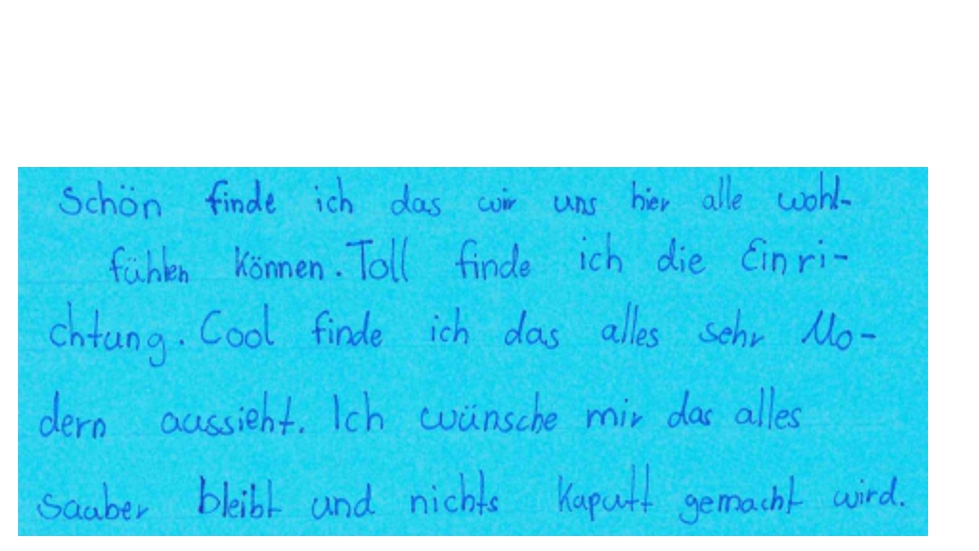 Schön finde ich das wir uns hier alle wohl-
fühlen können. Toll finde ich die Einri-
chtung. Cool finde ich das alles sehr Mo-
dern aussieht. Ich wünsche mir das alles
sauber bleibt und nichts kaputt gemacht wird.